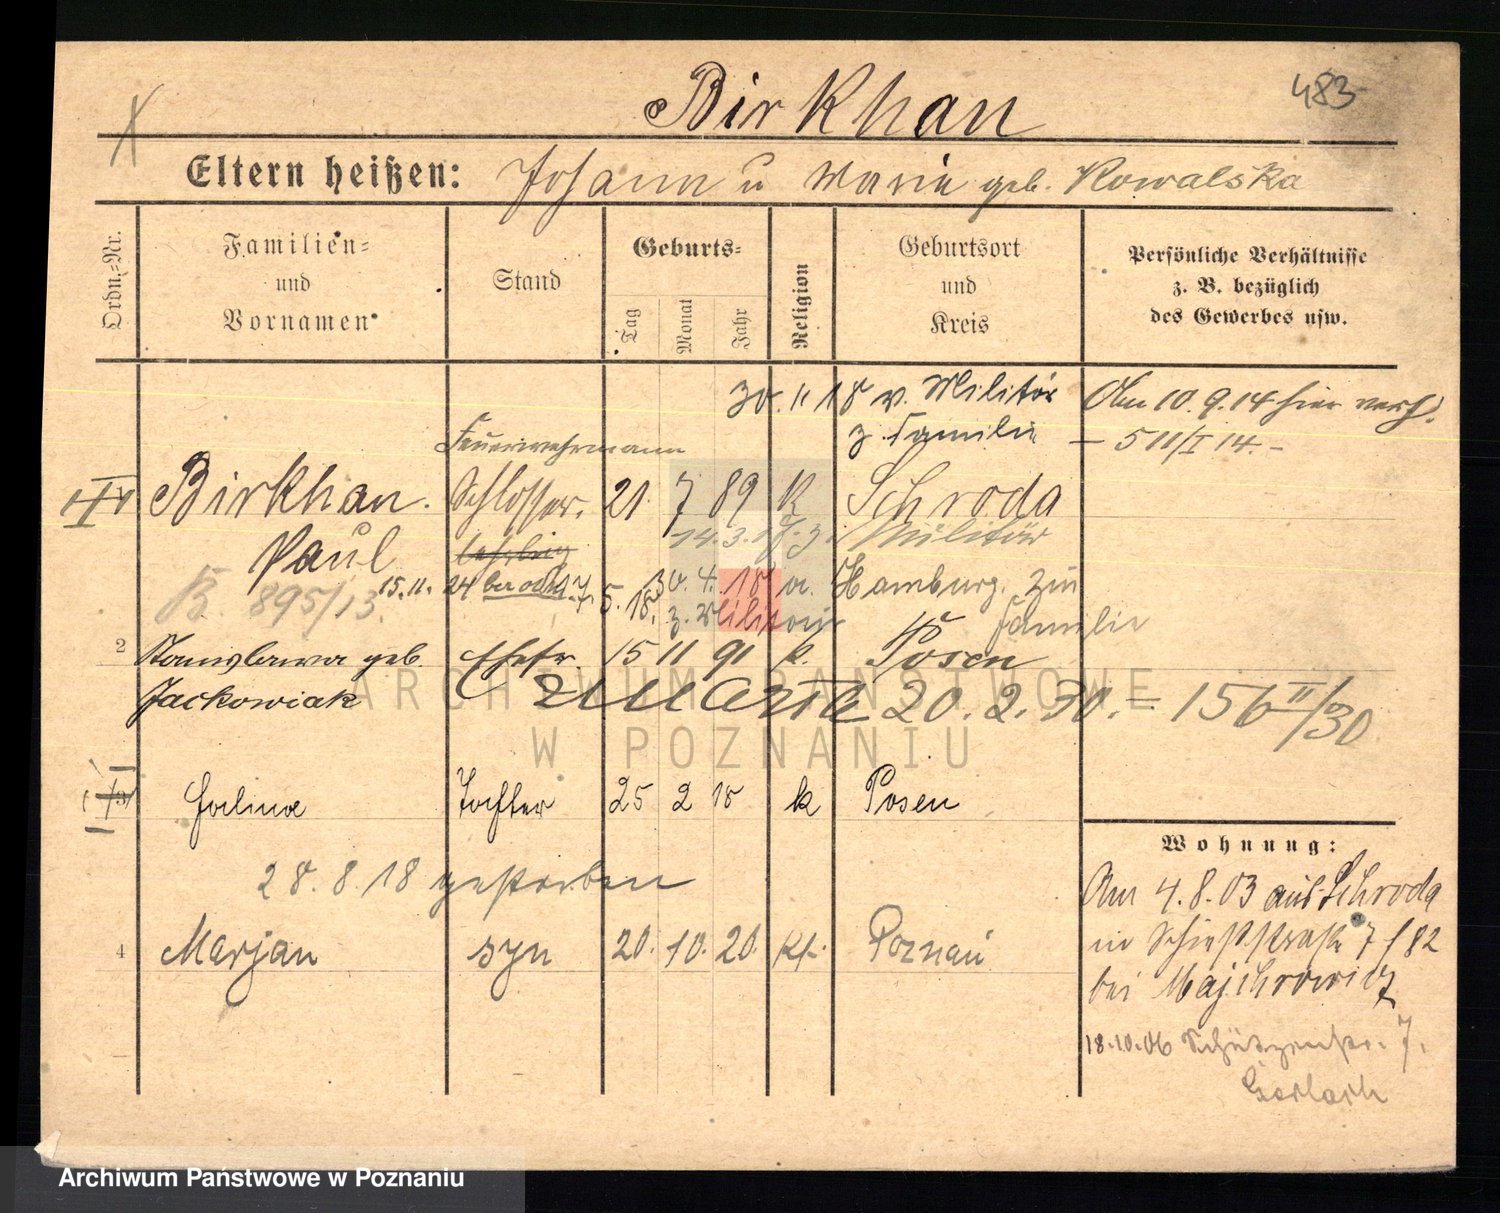 Birkhan
483
Eltern heißen: Johann u Marie geb. Kowalska
Ordn.-Nr.
Familien-
und
Vornamen
Stand
Geburts-
Tag
Monat
Jahr
Religion
Geburtsort
und
Kreis
Persönliche Verhältnisse
z. B. bezüglich
des Gewerbes usw.
30. 11 18 v. Militär
z. Familie
Am 10. 9. 14 hier verh.
- 511/I 14. -
Feuerwehrmann
Birkhan. Schlosser. 21. 7 89 K Schroda
14. 3. 17. z. Militär
Paul
15. 11. 24
30. 4. 18 a. Hamburg. zur
Familie
5. 18. z. Militär
B. 895/13
2 Stanislawa geb. Ehefr. 15 11 91 k. Posen
Jackowiak
zmarła 20. 2. 30. = 156 II/30
3 Halina Tochter 25 2 18 k Posen
28. 8. 18 gestorben
4 Marjan syn 20. 10. 20 kt. Poznań
Wohnung:
Am 4. 8. 03 aus Schroda
in Schießstraße 7 f 82
bei Majchrowicz
18. 10. 06 Schützenstr. 7.
Gerlach
ARCHIWUM PAŃSTWOWE
W POZNANIU
Archiwum Państwowe w Poznaniu